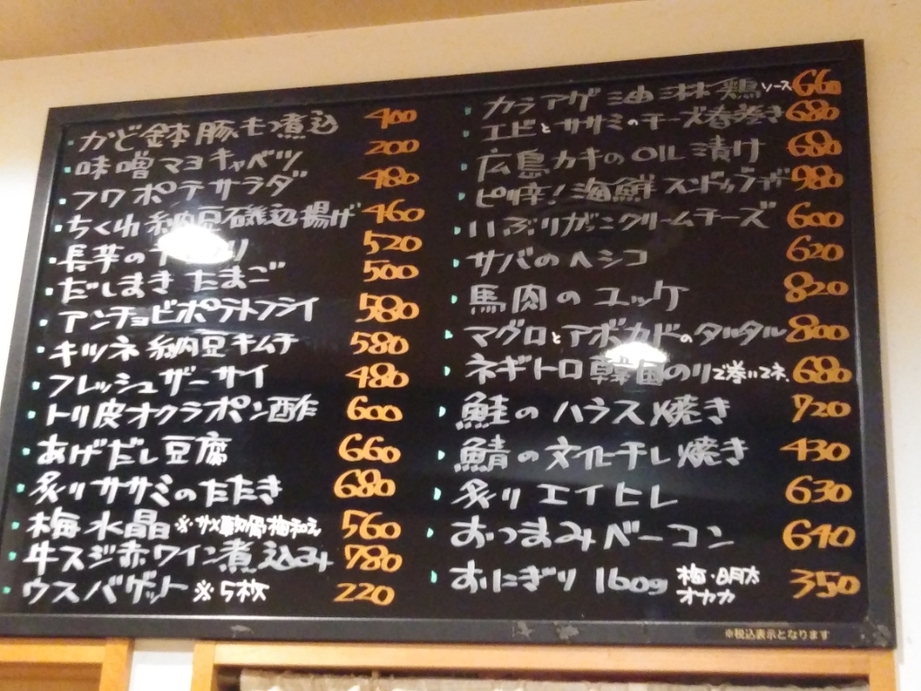 ・かど鉢豚もつ煮込 400
・味噌マヨキャベツ 200
・フワポテサラダ 480
・ちくわ納豆磯辺揚げ 460
・長芋の 520
・だしまきたまご 500
・アンチョビポテトフライ 580
・キツネ納豆キムチ 580
・フレッシュザーサイ 480
・トリ皮オクラポン酢 600
・あげだし豆腐 660
・炙りササミのたたき 680
・梅水晶 ※サメ軟骨梅和え 560
・牛スジ赤ワイン煮込み 780
・ウスバゲット ※5枚 220
・カラアゲ油淋鶏ソース 660
・エビとササミのチーズ春巻き 680
・広島カキのOIL漬け 680
・ピリ辛!海鮮スンドゥブチゲ 980
・いぶりガッコクリームチーズ 600
・サバのヘシコ 620
・馬肉のユッケ 820
・マグロとアボカドのタルタル 800
・ネギトロ韓国のりで巻いてネ、 680
・鮭のハラス焼き 720
・鯖の文化干し焼き 430
・炙りエイヒレ 630
・おつまみベーコン 640
・おにぎり 160g 梅・明太 オカカ 350
※税込表示となります